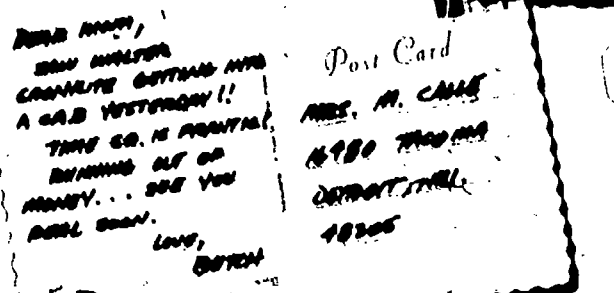 DEAR MOM,
SAW WALTER
CRONKITE GETTING INTO
A CAB YESTERDAY!!
TIME SQ. IS
RUNNING OUT OF
MONEY... SEE YOU
REAL SOON.
LOVE,
BUTCH
Post Card
MRS. M. CALLE
16980 TACOMA
DETROIT, MICH.
48205